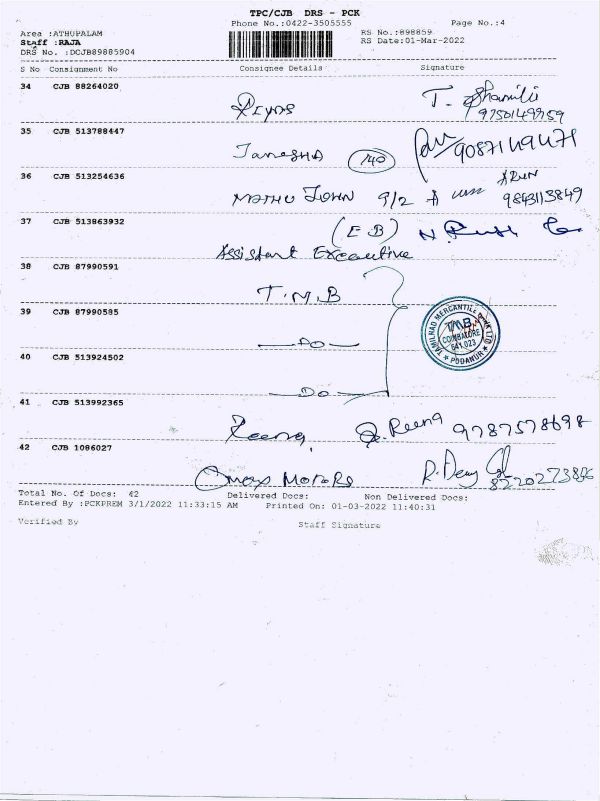 TPC/CJB DRS - PCK
Phone No.:0422-3505555
Page No.:4
Area :ATHUPALAM
RS No.:898859
Staff :RAJA
RS Date:01-Mar-2022
DRS No. :DCJB89885904
S No Consignment No Consignee Details Signature
34 CJB 88264020
Priyas T. Sharmili
9750149959
35 CJB 513788447
Janesha 140 9087149471
36 CJB 513254636 ARUN
MATHU JOHN 9/2 A 9843113849
37 CJB 513863932
(EB) N.
Assistant Executive
38 CJB 87990591
T.M.B
39 CJB 87990585
TAMILNAD MERCANTILE BANK LTD
TMB
COIMBATORE
641 023
PODANUR
—DO—
40 CJB 513924502
—DO—
41 CJB 513992365
Reena, Reena 9787578698
42 CJB 1086027
Omax Motors R. 8220273856
Total No. Of Docs: 42 Delivered Docs: Non Delivered Docs:
Entered By :PCKPREM 3/1/2022 11:33:15 AM Printed On: 01-03-2022 11:40:31
Verified By Staff Signature